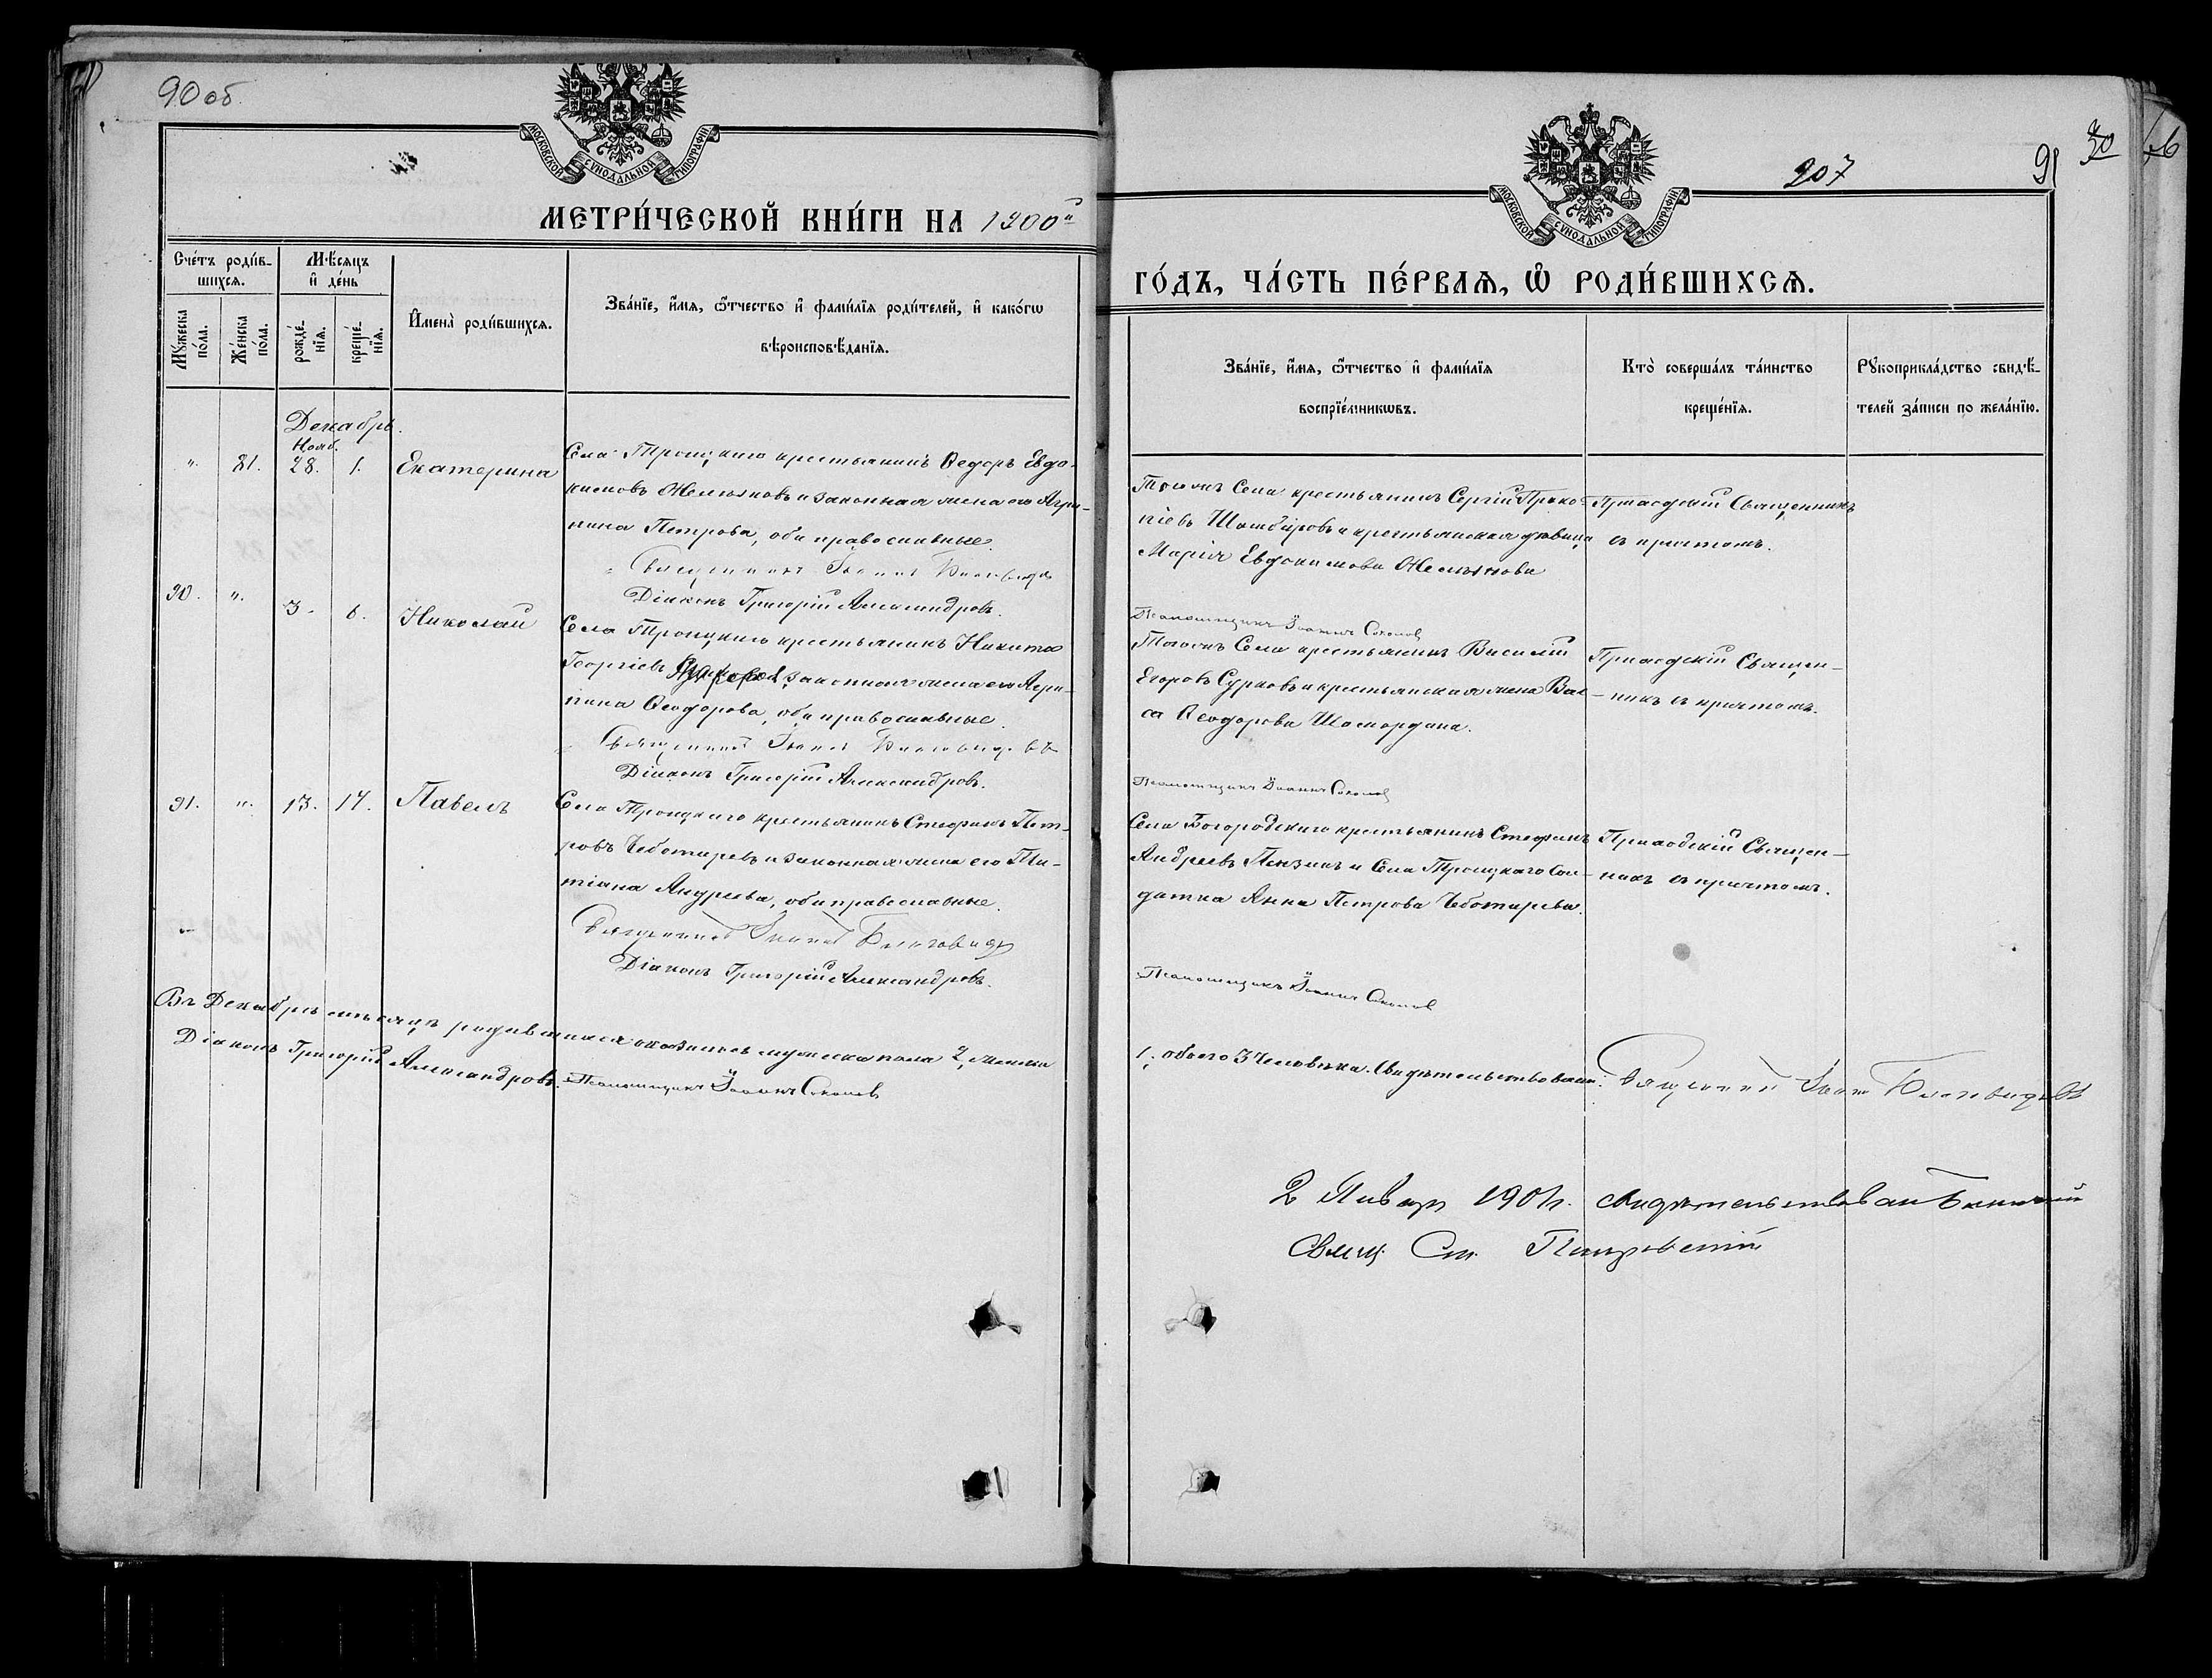 90 об.
МОСКОВСКОЙ СѴНОДАЛЬНОЙ ТИПОГРАФІИ
МЕТРИ́ЧЕСКОЙ КНИ́ГИ НА 1900й
Сче́тъ роди́в-
шихсѧ.
Мѣ́сѧцъ
и҆ де́нь
Мꙋ́жеска
по́ла.
Же́нска
по́ла.
рожде́-
нїѧ.
креще́-
нїѧ.
И҆мена̀ роди́вшихсѧ.
Зва́нїе, и҆́мѧ, ѻ҆́тчество и҆ фами́лїѧ роди́телей, и҆ како́гѡ
вѣроисповѣ́данїѧ.
Декабрь.
Нояб.
". 81. 28. 1. Екатерина
Села Троицкаго крестьянинъ Ѳедоръ Евдо-
кимовъ и законная жена его Агри-
пина Петрова, оба православные.
Священникъ Іоаннъ
Діаконъ Григорій Александровъ.
90. ". 3. 6. Николай
Села Троицкаго крестьянинъ Никита
Георгіевъ законная жена его Агри-
пина Ѳеодорова, оба православные.
Священникъ Іоаннъ
Діаконъ Григорій Александровъ.
91. ". 13. 17. Павелъ
Села Троицкаго крестьянинъ Стефанъ Пет-
ровъ Чеботаревъ и законная жена его Та-
тіана Андреева, оба православные.
Священникъ Іоаннъ Благовидовъ
Діаконъ Григорій Александровъ.
Въ Декабрѣ мѣсяцѣ родившихся оказалось мужеска пола 2, женска
Діаконъ Григорій Александровъ. Псаломщикъ Іоаннъ Соколовъ
207
91
30
МОСКОВСКОЙ СѴНОДАЛЬНОЙ ТИПОГРАФІИ
ГО́ДЪ, ЧА́СТЬ ПЕ́РВАѦ, Ѽ РОДИ́ВШИХСѦ.
Зва́нїе, и҆́мѧ, ѻ҆́тчество и҆ фами́лїѧ
воспрїе́мникѡвъ.
Кто̀ соверша́лъ та́инство
креще́нїѧ.
Рꙋкоприкла́дство свидѣ́-
телей за́писи по жела́нїю.
Тогожъ Села крестьянинъ Сергій Проко-
піевъ и крестьянская дѣвица
Марія Евдокимова
Приходскій Священникъ
съ причтомъ.
Псаломщикъ Іоаннъ Соколовъ
Тогожъ Села крестьянинъ Василій
Егоровъ Сурковъ и крестьянская жена Вас-
са Ѳеодорова
Приходскій Священ-
никъ съ причтомъ.
Псаломщикъ Іоаннъ Соколовъ
Села Богородскаго крестьянинъ Стефанъ
Андреевъ Пензинъ и Села Троицкаго Сол-
датка Анна Петрова Чеботарева.
Приходскій Священ-
никъ съ причтомъ.
Псаломщикъ Іоаннъ Соколовъ
1, обоего 3 человѣка. Свидѣтельствовали: Священникъ Іоаннъ Благовидовъ
2 Января 1901 г. свидѣтельствовалъ Благочинный
Свящ. Ст. Покровскій